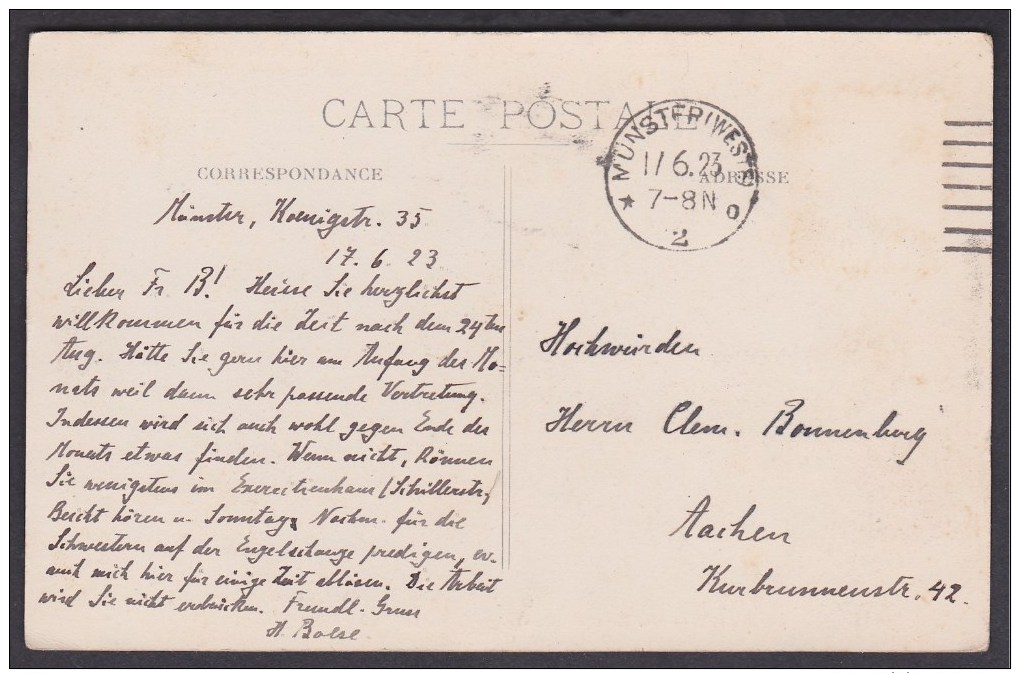 CARTE POSTALE
CORRESPONDANCE
ADRESSE
MÜNSTER (WESTF)
17 6.23
7-8 N
2
Münster, Koenigstr. 35
17. 6. 23
Lieber Fr B! Heisse Sie herzlichst
willkommen für die Zeit nach dem 24ten
Aug. Hätte Sie gern hier am Anfang des Mo=
nats weil dann sehr passende Vertretung.
Indessen wird sich auch wohl gegen Ende des
Monats etwas finden. Wenn nicht, können
Sie wenigstens im Exercitienhaus (Schillerstr.)
Beicht hören u. Sonntags Nachm. für die
Schwestern auf der Engelschanze predigen, ev.
auch mich hier für einige Zeit ablösen. Die Arbeit
wird Sie nicht erdrücken. Freundl. Gruss
H. Boese
Hochwürden
Herrn Clem. Bonnenberg
Aachen
Kurbrunnenstr. 42.